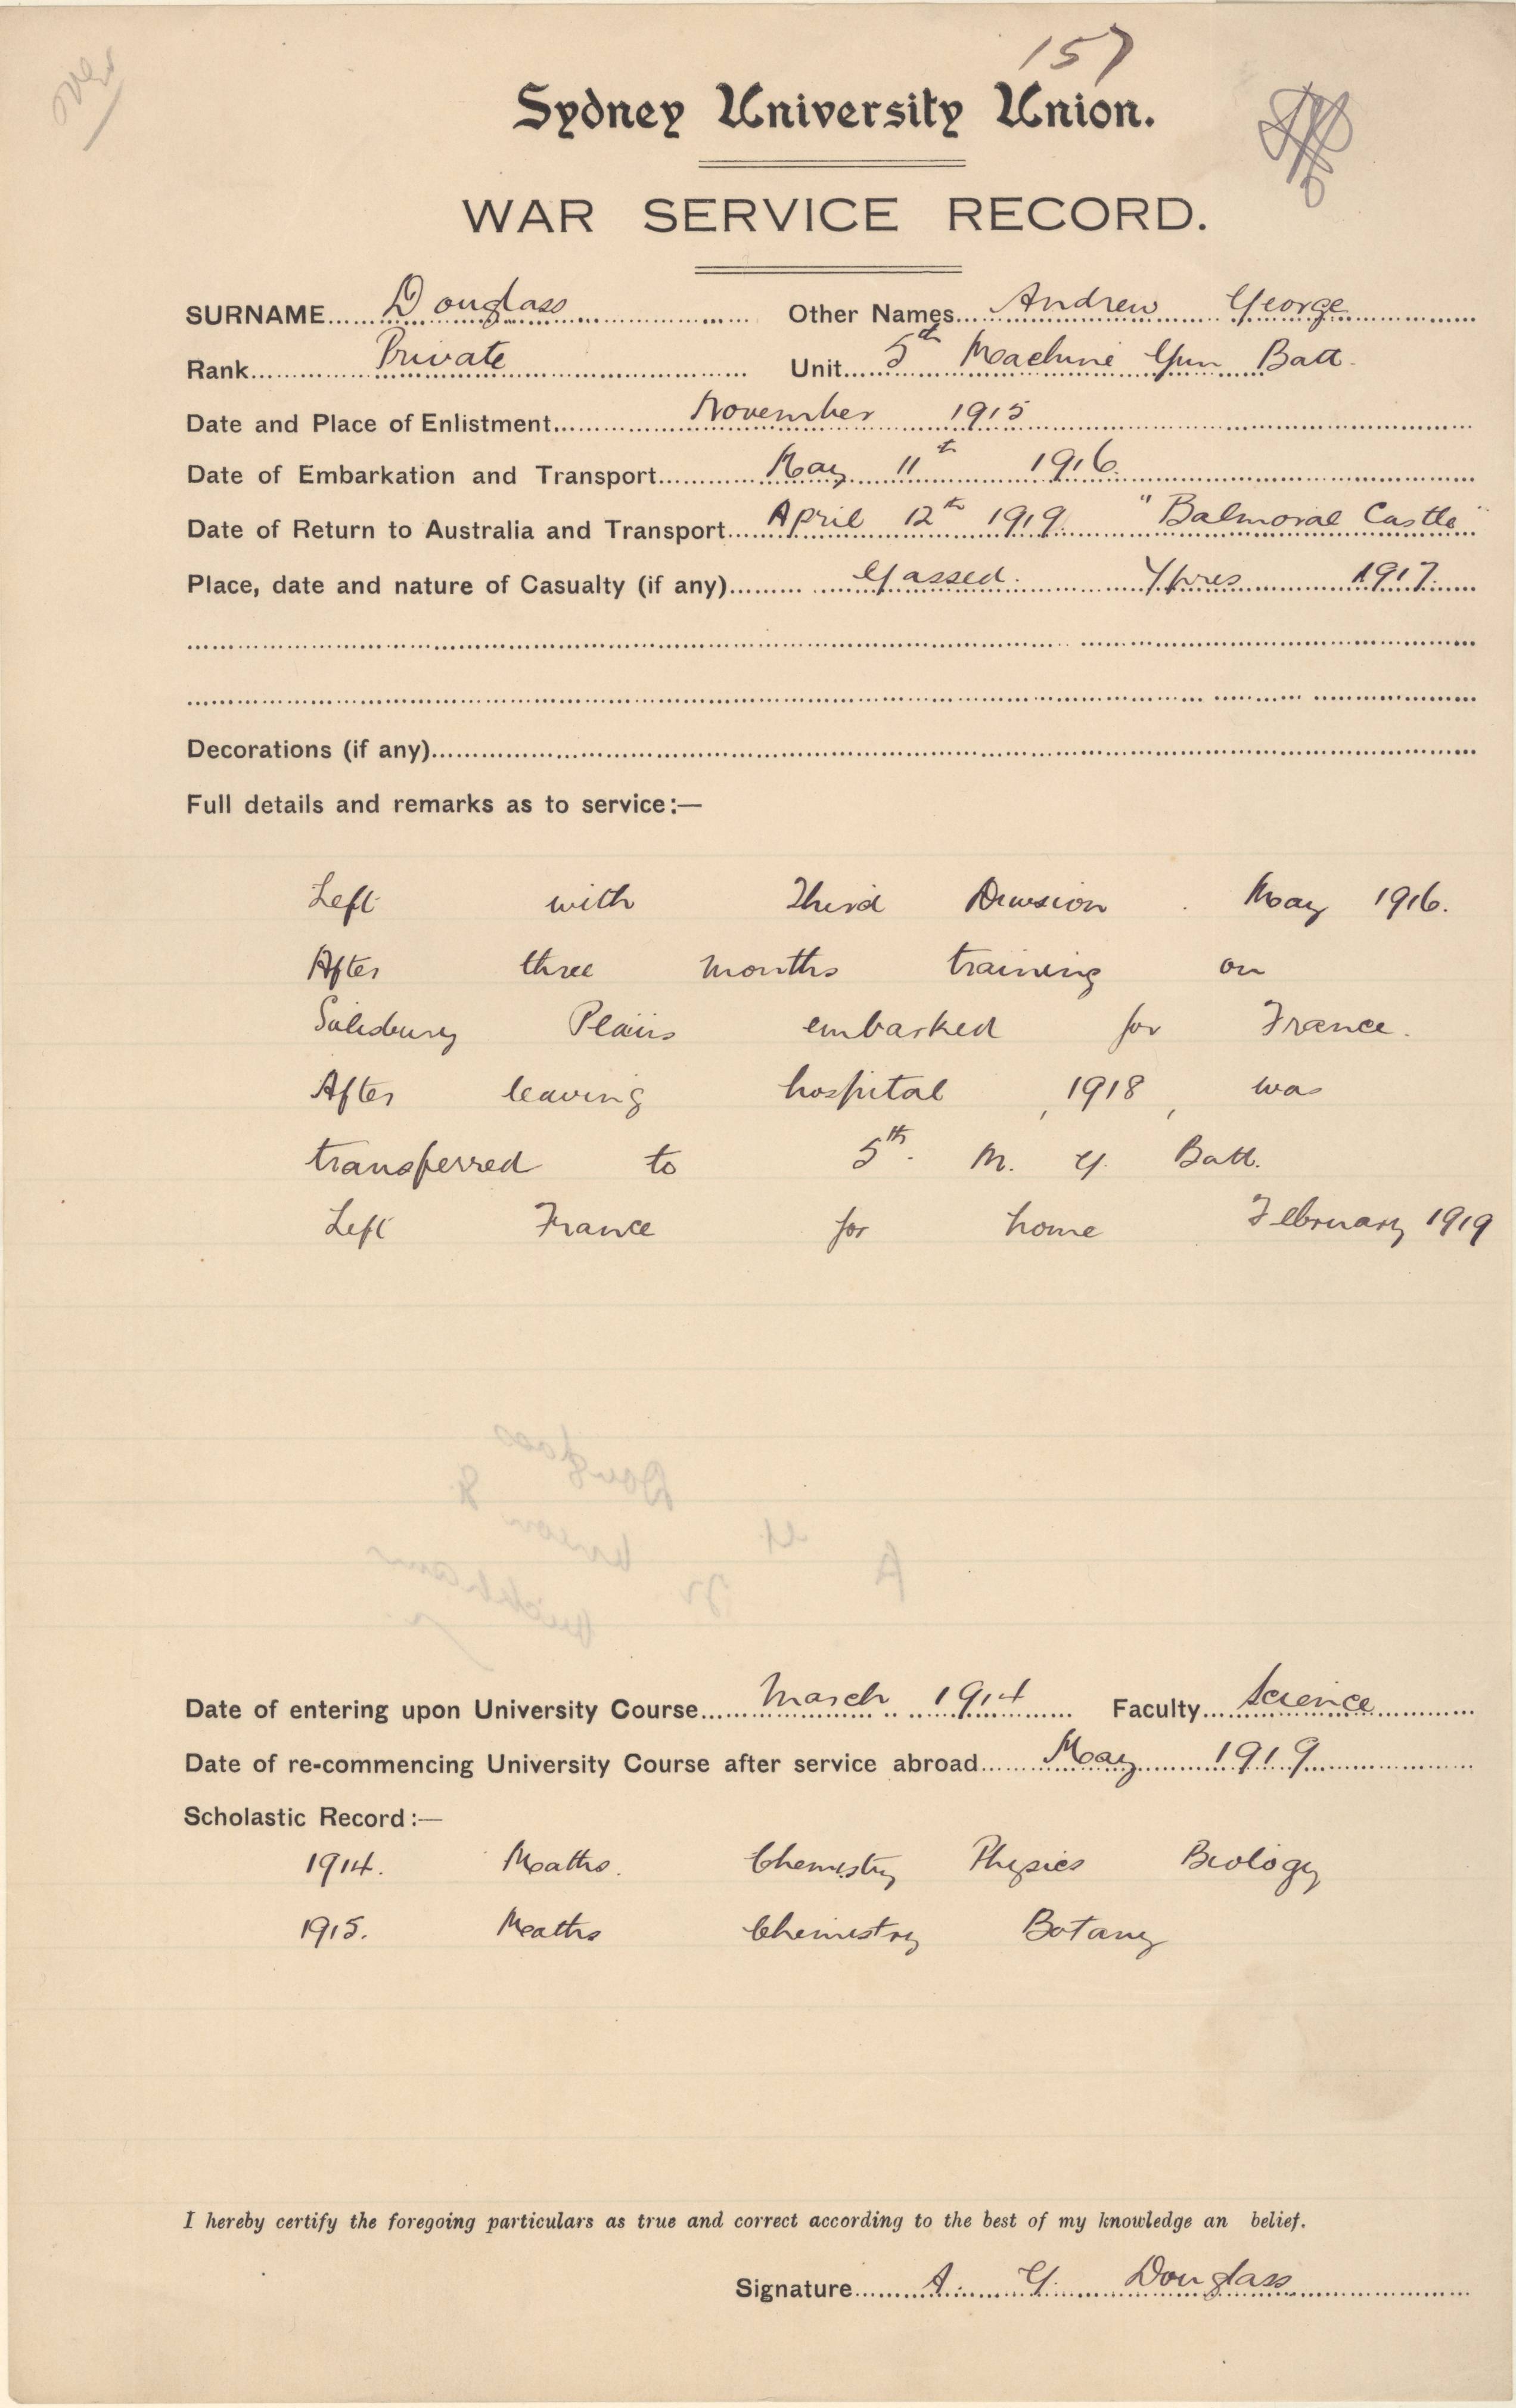 over
157
Sydney University Union.
WAR SERVICE RECORD.
SURNAME Douglass Other Names Andrew George
Rank Private Unit 5th Machine Gun Batt.
Date and Place of Enlistment November 1915
Date of Embarkation and Transport May 11th 1916.
Date of Return to Australia and Transport April 12th 1919. "Balmoral Castle"
Place, date and nature of Casualty (if any) Gassed. Ypres 1917.
Decorations (if any)
Full details and remarks as to service:—
Left with Third Division . May 1916.
After three months training on
Salisbury Plains embarked for France.
After leaving hospital , 1918 , was
transferred to 5th. M. G. Batt.
Left France for home February 1919
Date of entering upon University Course March 1914 Faculty Science
Date of re-commencing University Course after service abroad May 1919
Scholastic Record:—
1914. Maths. Chemistry Physics Biology
1915. Maths Chemistry Botany
I hereby certify the foregoing particulars as true and correct according to the best of my knowledge an belief.
Signature A. G. Douglass